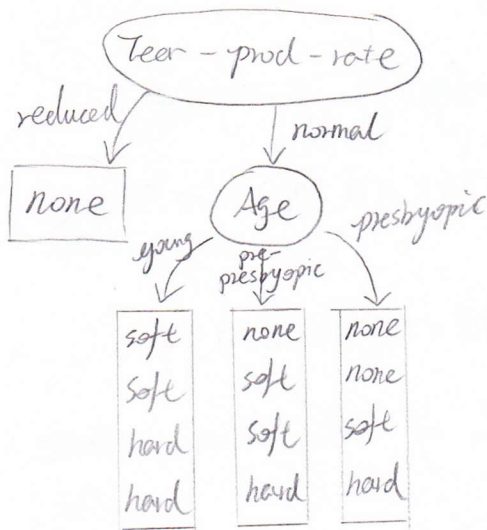 Teer - prod - rate
reduced
normal
none
Age
presbyopic
young
pre-
presbyopic
soft
soft
hard
hard
none
soft
soft
hard
none
none
soft
hard